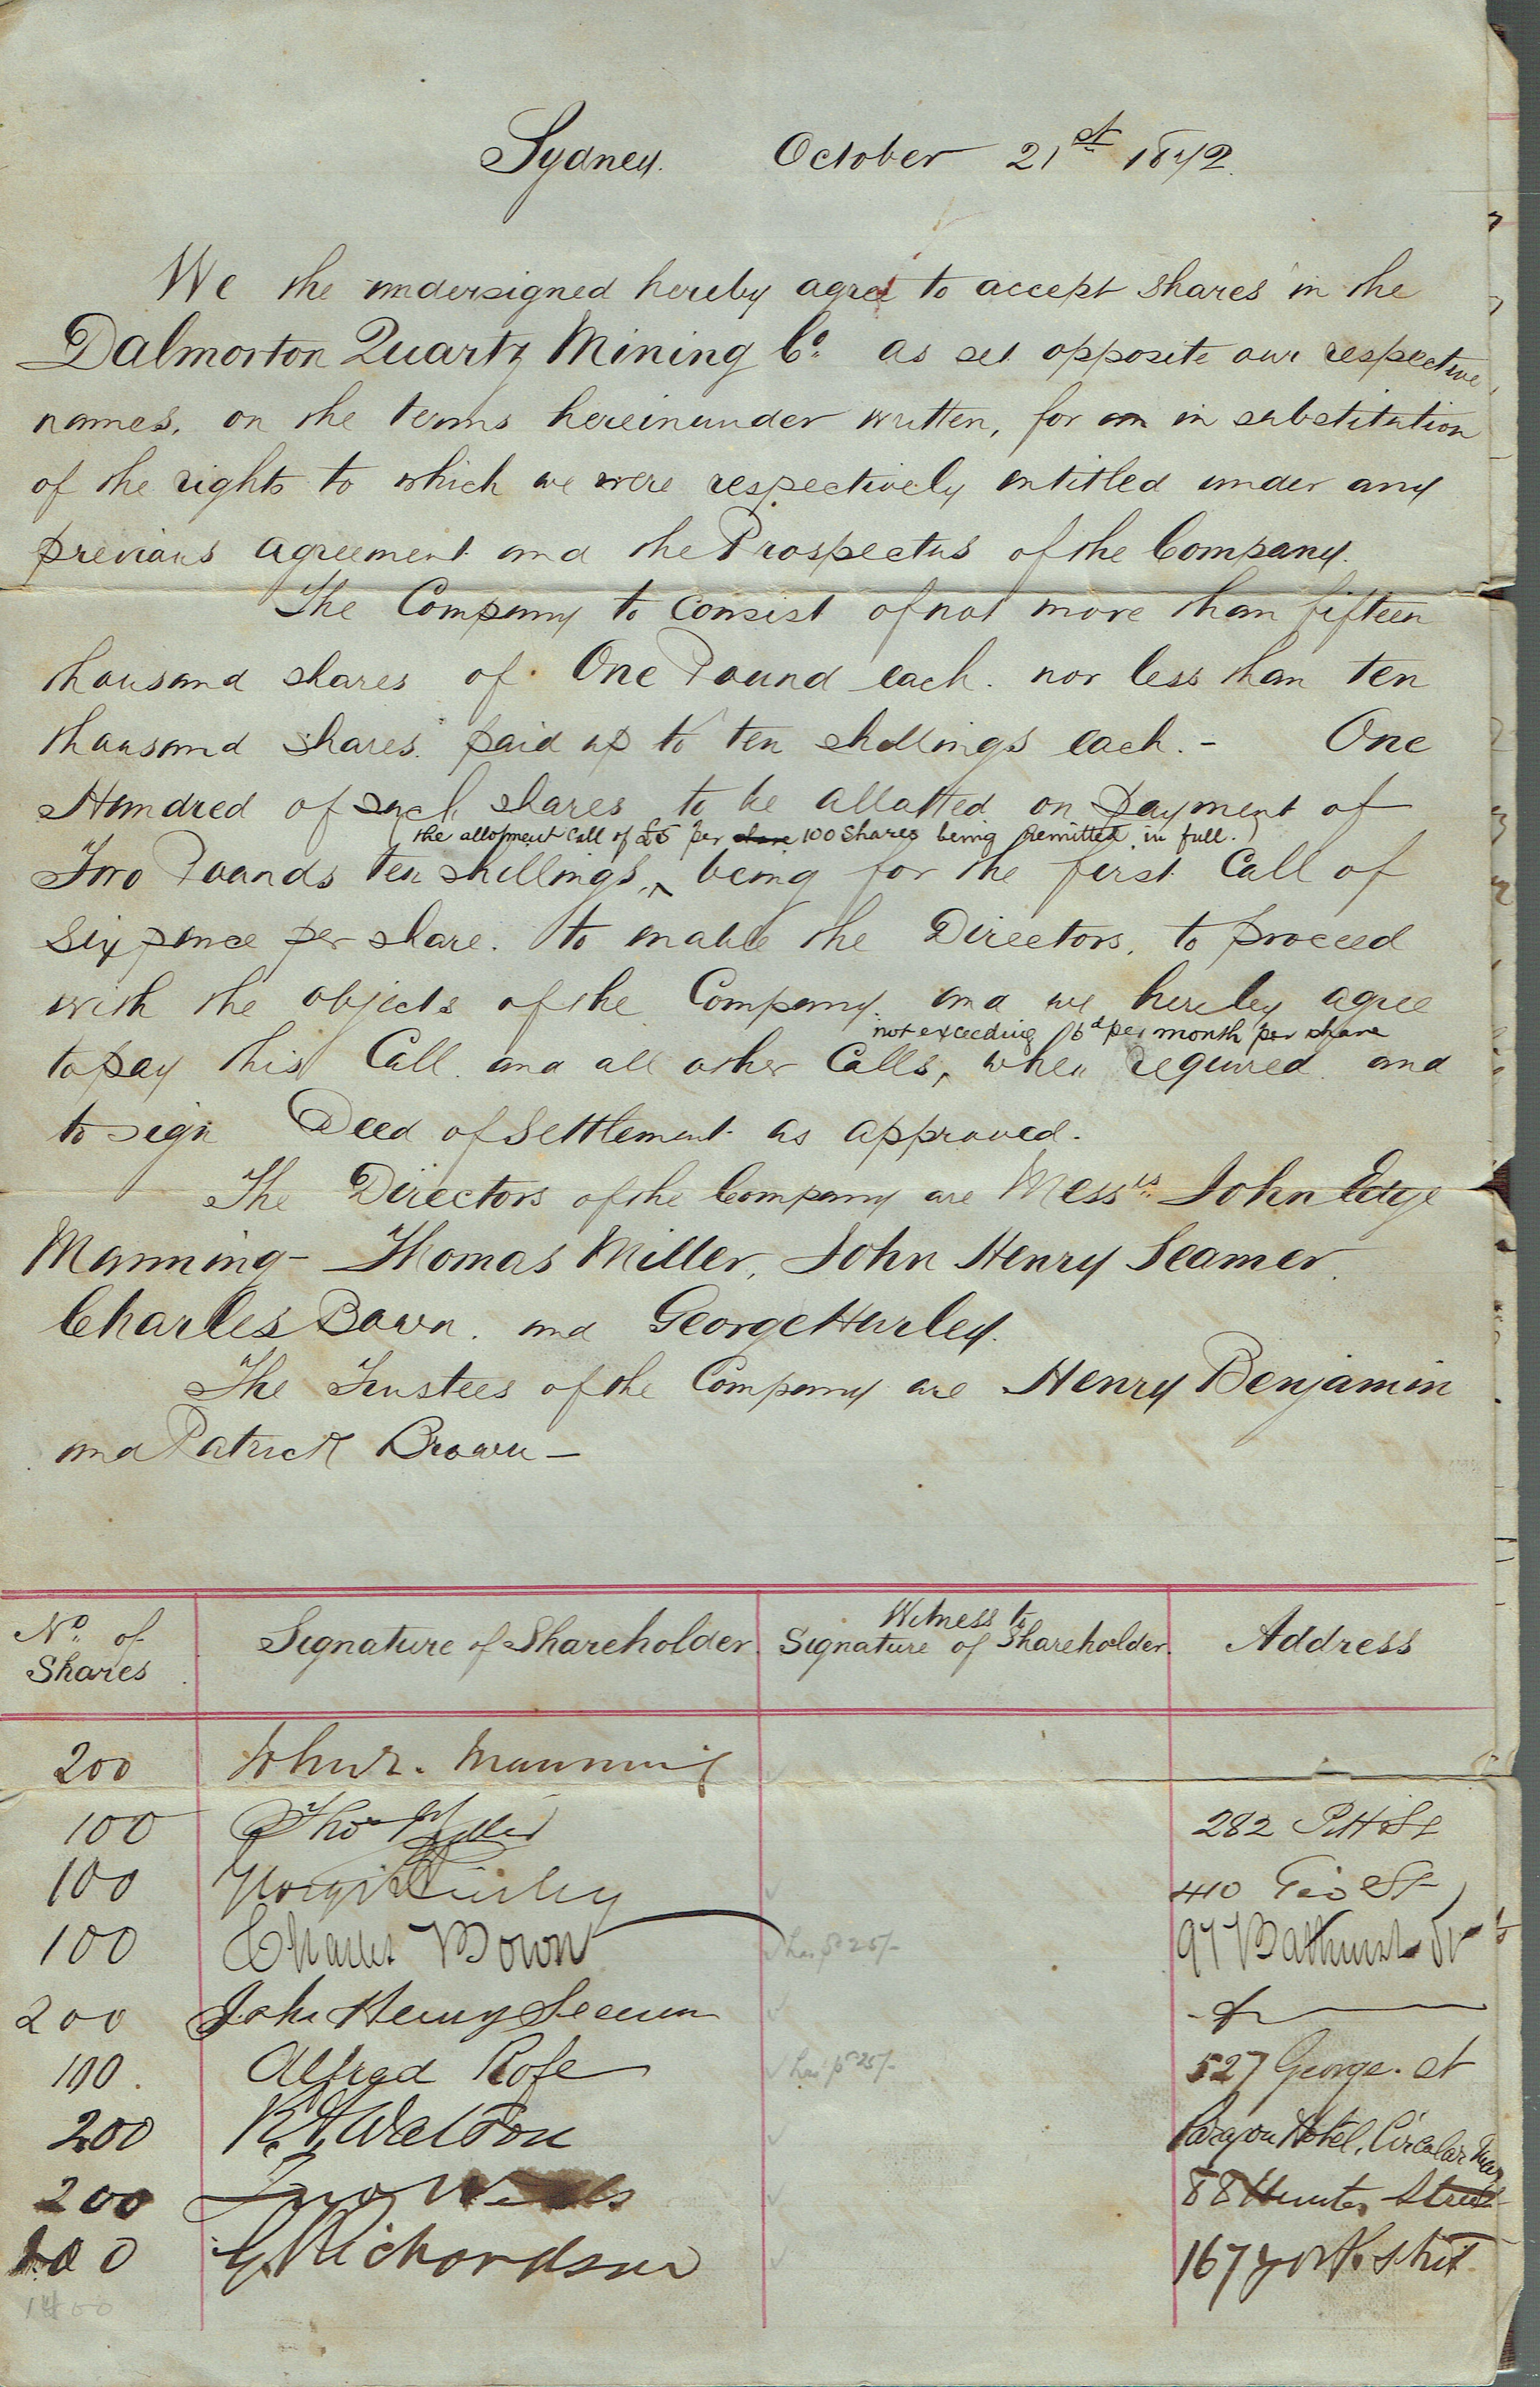 Sydney. October 21st 1872.
We the undersigned hereby agree to accept shares in the
Dalmorton Quartz Mining Co. as set opposite our respective
names, on the terms hereinunder written, for in substitution
of the rights to which we were respectively entitled under any
previous agreement and the Prospectus of the Company.
The Company to consist of not more than fifteen
thousand shares of One Pound each. nor less than ten
thousand shares paid up to ten shillings each. - One
Hundred of such shares to be allotted on payment of
(the allotment call of £5 per share 100 shares being remitted in full.)
Two Pounds ten shillings, being for the first Call of
Sixpence per share. to enable the Directors, to proceed
with the objects of the Company. and we hereby agree
not exceeding /6d per month per share
to pay this Call and all other Calls, when required and
to sign Deed of Settlement as approved.
The Directors of the Company are Messrs John Edye
Manning - Thomas Miller, John Henry Seamer.
Charles Bown. and George Hurley.
The Trustees of the Company are Henry Benjamin
and Patrick Brown -
No. of Shares Signature of Shareholder. Witness to Signature of Shareholder. Address
200 John E. Manning
100 Thos Miller 282 Pitt St
100 George Hurley 410 Geo St
100 Charles Bown 97 Bathurst St
200 John Henry Seamer
100. Alfred Rofe 527 George. st
200 R. H. Walton Paragon Hotel, Circular Quay
200 Jno 88 Hunter Street
200 G Richardson 167 York Street
1400